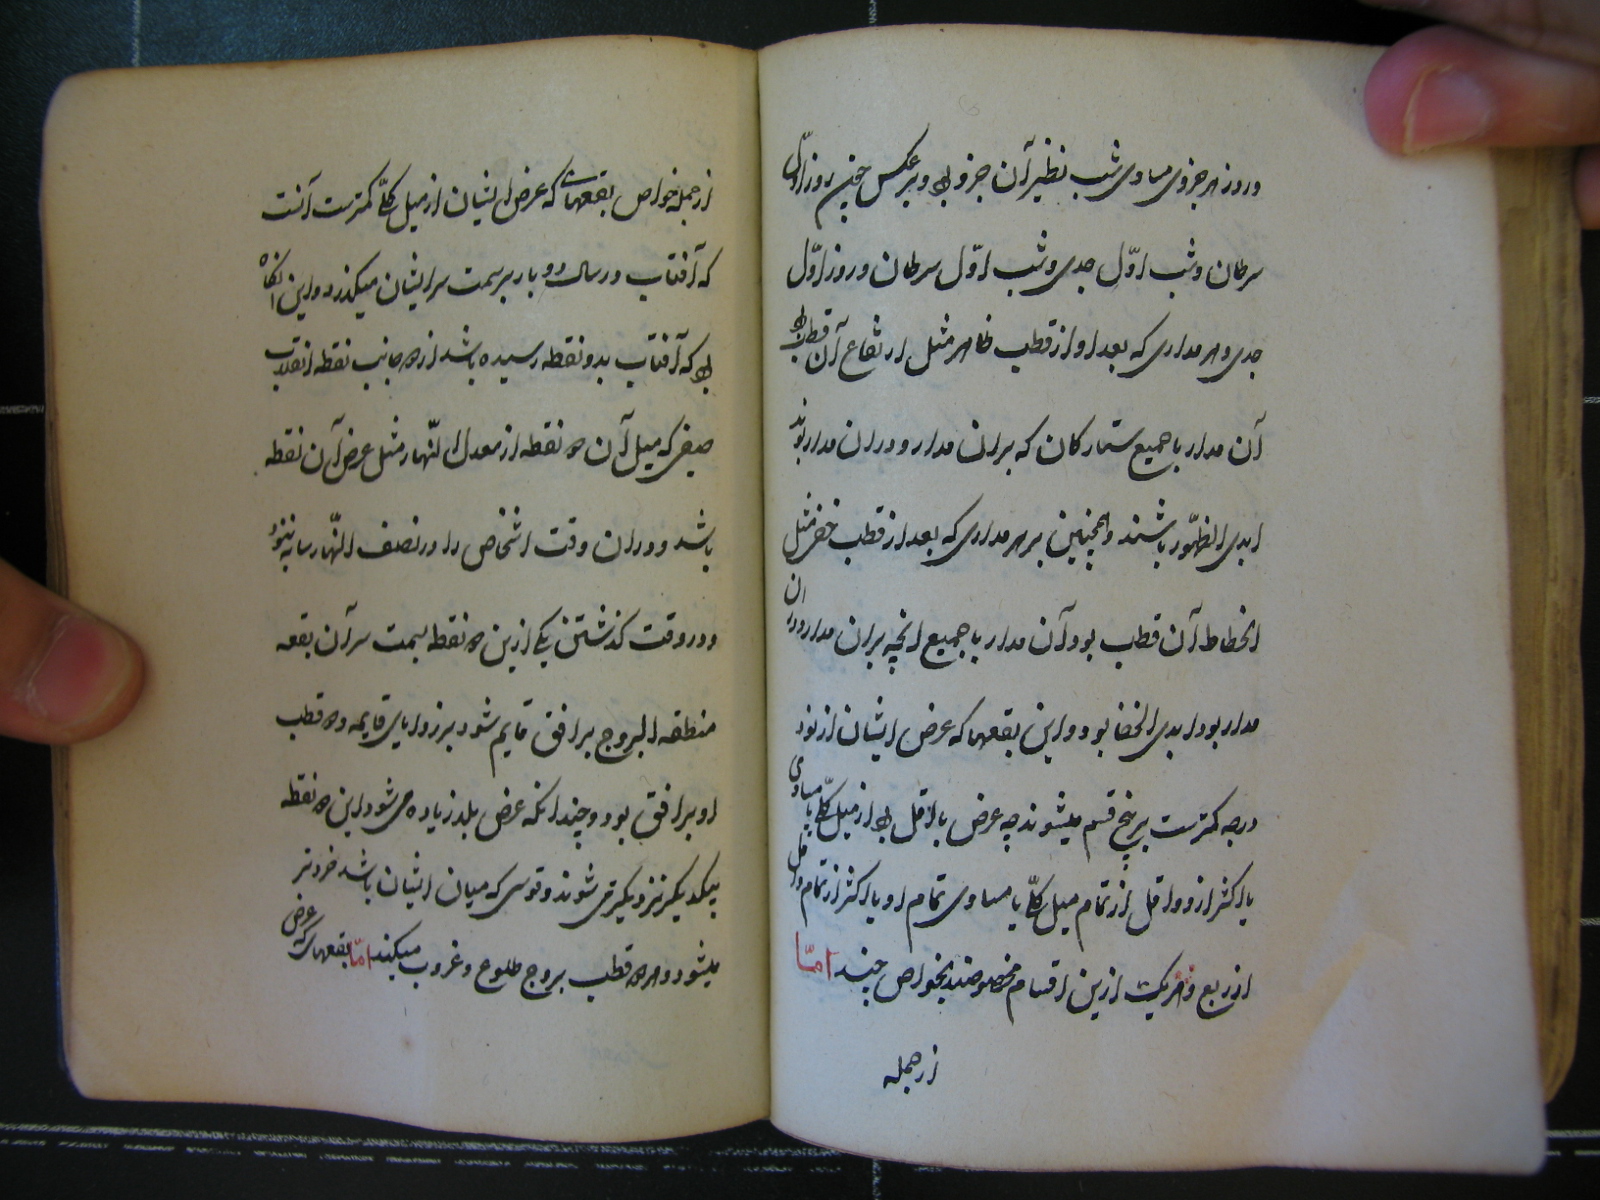 و روز هر جزوی مساوی شب نظیر آن جزو بود و بر عکس چنین روز اول
سرطان و شب اوّل جدی و شب اوّل سرطان و روز اوّل
جدی و هر مداری که بعد او از قطب ظاهر مثل ارتفاع آن قطب بود
آن مدار با جمیع ستارکان که بران مدار و دران مدار بوند
ابدی الظهور باشند و همچنین بر هر مداری که بعد از قطب خفی مثل
انحطاط آن قطب بود آن مدار با جمیع انچه بران مدار و دران
مدار بود ابدی الخفا بود و این بقعها که عرض ایشان از نود
درجه کمترست بر پنج قسم میشوند چه عرض یا اقل بود از میل کلّی یا مساوی
یا اکثر ازو و اقل از تمام میل کلّی یا مساوی تمام او یا اکثر از تمام و اقل
از ربع و هر یک ازین اقسام مخصوصند بخواص چند امّا
از جمله
از جمله خواص بقعهای که عرض ایشان از میل کلّی کمترست آنست
که آفتاب در سال دو بار بر سمت سر ایشان میکذرد و این انکاه
بود که آفتاب بدو نقطه رسیده باشد از دو جانب نقطه انقلاب
صیفی که میل آن دو نقطه از معدل النّهار مثل عرض آن نقطه
باشد و دران وقت اشخاص را در نصف النّهار سایه نبود
و در وقت کذشتن یکی ازین دو نقطه بسمت سر آن بقعه
منطقه البروج بر افق قایم شود بر زوایای قایمه و دو قطب
او بر افق بود و چندانکه عرض بلد زیاده می شود این دو نقطه
بیکدیکر نزدیکتر می شوند و قوسی که میان ایشان باشد خردتر
میشود و هر دو قطب بروج طلوع و غروب میکنند امّا بقعهای که عرض